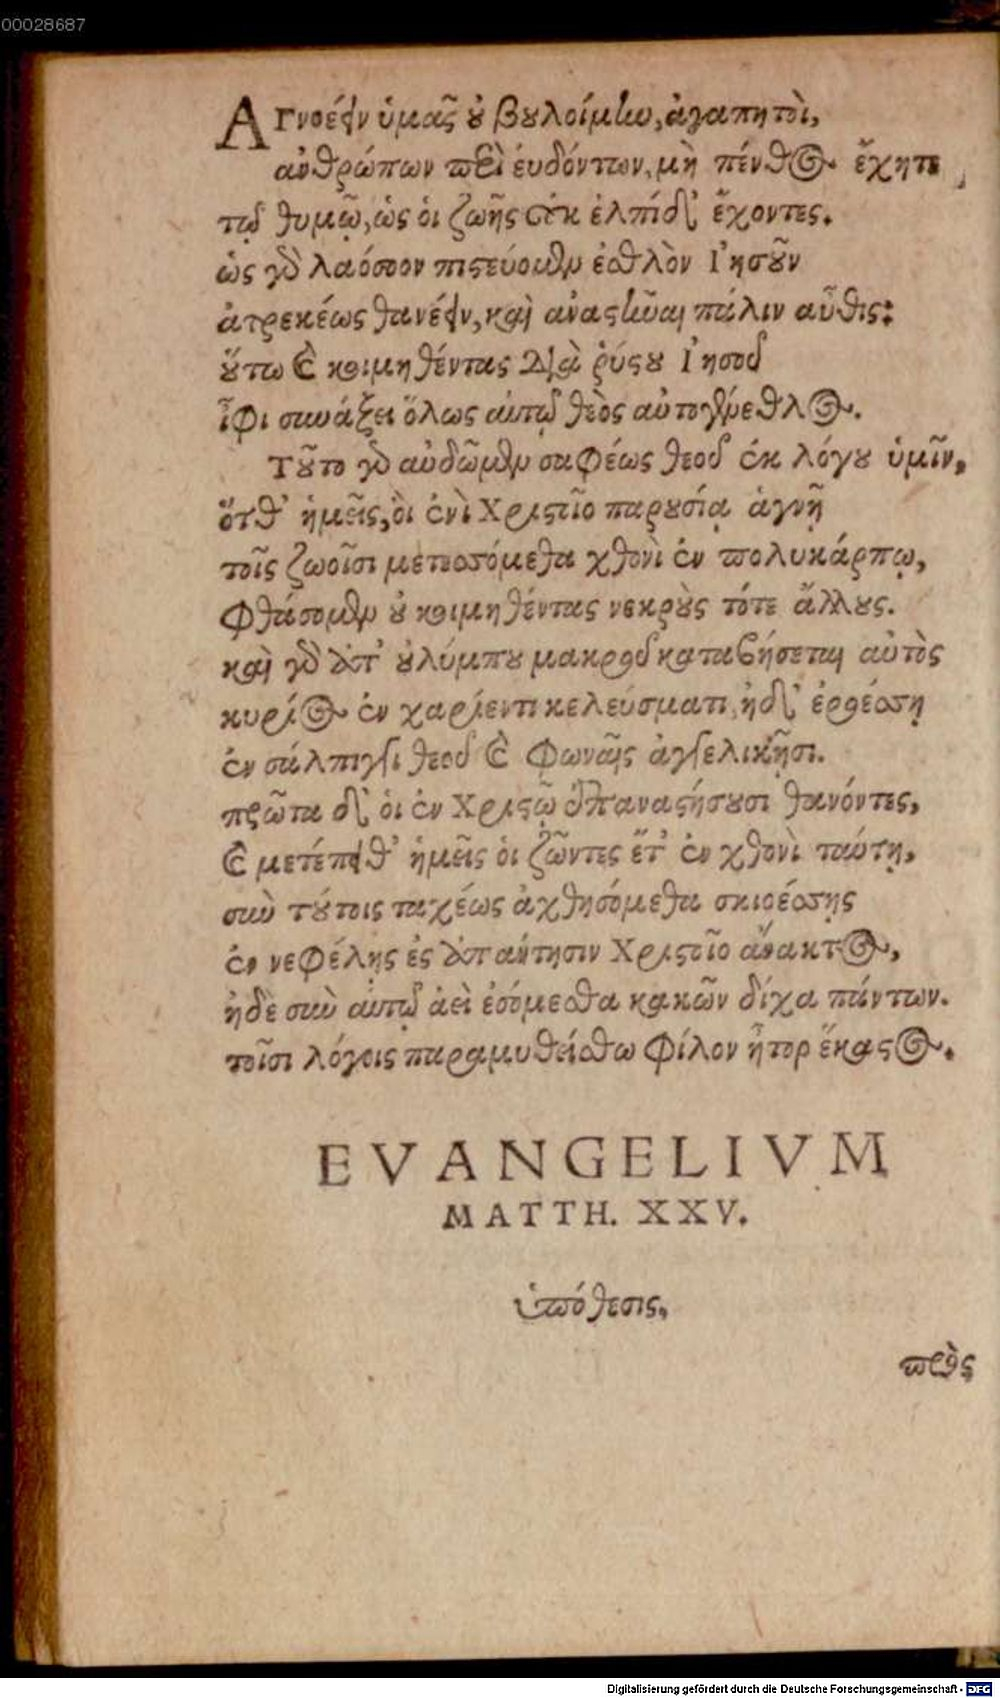 00028687
Ἀγνοέειν ὑμᾶς οὐ βουλοίμην, ἀγαπητοὶ,
ἀνθρώπων περὶ εὑδόντων, μὴ πένθος ἔχητε
τῷ θυμῷ, ὡς οἱ ζωῆς οὐκ ἐλπίδ' ἔχοντες.
ὡς γὰρ λαόσσον πιστεύομεν ἐσθλὸν Ἰησοῦν
ἀτρεκέως θανέειν, καὶ ἀναστῆναι πάλιν αὖθις:
οὕτω καὶ κοιμηθέντας διὰ ῥύστου Ἰησοῦ
ἶφι συνάξει ὅλως αὐτῷ θεὸς αὐτογένεθλος.
Τοῦτο γὰρ αὐδῶμεν σαφέως θεοῦ ἐκ λόγου ὑμῖν,
ὅτθ' ἡμεῖς, οἳ ἐνὶ Χριστοῖο παρουσίᾳ ἁγνῇ
τοῖς ζωοῖσι μετεσσόμεθα χθονὶ ἐν πολυκάρπῳ,
φθάσομεν οὐ κοιμηθέντας νεκροὺς τότε ἄλλους.
καὶ γὰρ ἀπ' οὐλύμπου μακροῦ καταβήσεται αὐτὸς
κυρίος ἐν χαρίεντι κελεύσματι, ἠδ' ἐροέσσῃ
ἐν σάλπιγγι θεοῦ καὶ φωναῖς ἀγγελικῇσι.
πρῶτα δ' οἱ ἐν Χριστῷ ἐπαναστήσουσι θανόντες,
καὶ μετέπειθ' ἡμεῖς οἱ ζῶντες ἔτ' ἐν χθονὶ ταύτῃ,
σὺν τούτοις ταχέως ἀχθησόμεθα σκιοέσσῃς
ἐν νεφέλῃς ἐς ἀπαύτησιν Χριστοῖο ἄνακτος,
ἠδὲ σὺν αὐτῷ ἀεὶ ἐσόμεσθα κακῶν δίχα πάντων.
τοῖσι λόγοις παραμυθείσθω φίλον ἦτορ ἕκαστος.
EVANGELIVM
MATTH. XXV.
ὑπόθεσις,
πρὸς
Digitalisierung gefördert durch die Deutsche Forschungsgemeinschaft - DFG